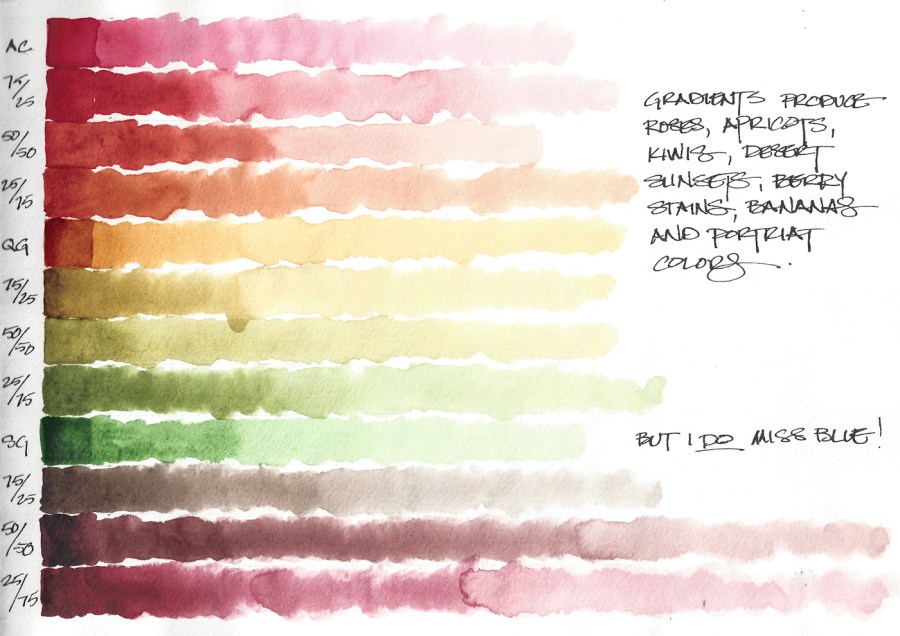 AC
75/25
50/50
25/75
QG
75/25
50/50
25/75
SG
75/25
50/50
25/75
GRADIENTS PRODUCE
ROSES, APRICOTS,
KIWIS, DESERT
SUNSETS, BERRY
STAINS, BANANAS
AND PORTRIAT
COLORS..
BUT I DO MISS BLUE!